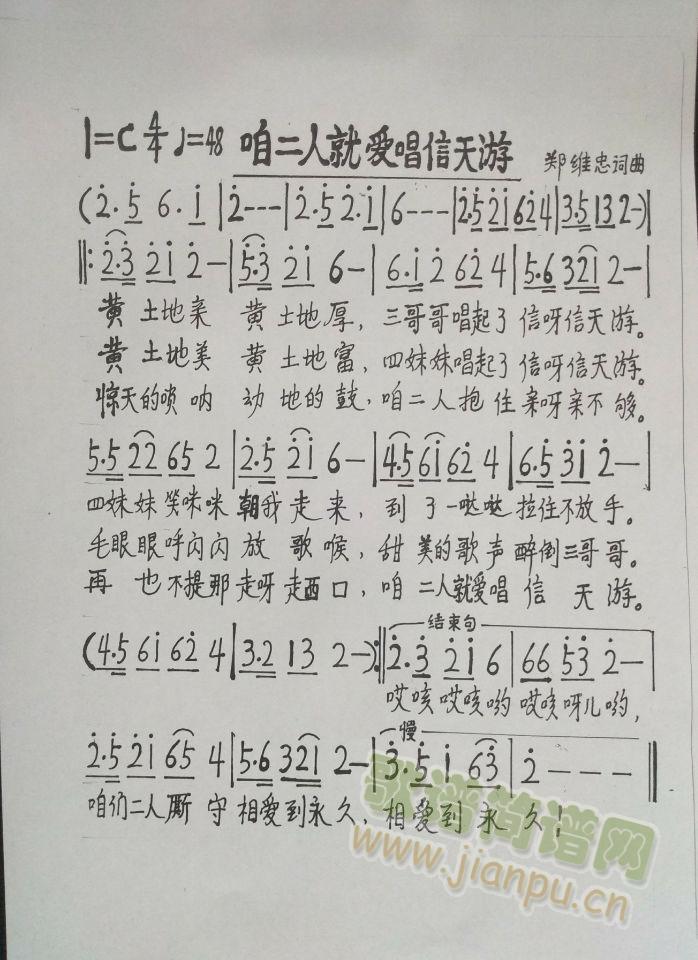 1=C 4/4 ♩=48 咱二人就爱唱信天游 郑维忠词曲
(2̇.5̇ 6.1̇|2̇---|2̇.5̇ 2̇.1̇|6---|2̇.5̇2̇1̇62̇4|3.5132-)
‖:2̇.3̇ 2̇1̇ 2̇-|5̇.3̇ 2̇1̇ 6-|6.1̇ 2̇ 62̇ 4|5.6 321̇ 2-|
黄土地亲 黄土地厚，三哥哥唱起了信呀信天游。
黄土地美 黄土地富，四妹妹唱起了信呀信天游。
惊天的唢呐 动地的鼓，咱二人抱住亲呀亲不够。
5.5 22 65 2|2̇.5̇ 2̇1̇ 6-|4.5 61̇ 62̇ 4|6.5 3̇1̇ 2̇-|
四妹妹笑咪咪朝我走来，到了一哒哒拉住不放手。
毛眼眼呼闪闪放歌喉，甜美的歌声醉倒三哥哥。
再也不提那走呀走西口，咱二人就爱唱信天游。
结束句
(4.5 61̇ 62̇ 4|3.2 13 2-):‖2̇.3̇ 2̇1̇ 6|66 5̇3̇ 2̇-|
哎咳哎咳哟哎咳呀儿哟，
慢
2̇.5̇ 2̇1̇ 65 4|5.6 321̇ 2-|3̇.5̇ 1̇ 63̇|2̇---‖
咱们二人厮守相爱到永久，相爱到永久！
歌谱简谱网
www.jianpu.cn